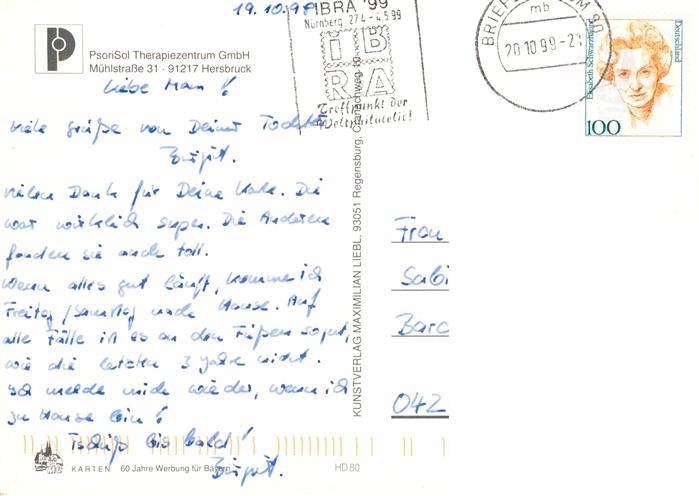 19.10.99
IBRA '99
Nürnberg 27.4.-4.5.99
IBRA
Treffpunkt der
Weltphilatelie!
BRIEFZENTRUM 90
mb
20.10.99-21
Deutschland
Elisabeth Schwarzhaupt
100
PsoriSol Therapiezentrum GmbH
Mühlstraße 31 · 91217 Hersbruck
Liebe Mam!
viele grüße von Deiner Tochter
Birgit.
vielen Dank für Deine Karte. Die
war wirklich super. Die Anderen
fanden sie auch toll.
Wenn alles gut läuft, komme ich
Freitag/Samstag nach Hause. Auf
alle Fälle ist es an den Füßen so gut,
wie die letzten 3 Jahre nicht.
Ich melde mich wieder, wenn ich
zu Hause bin!
Tschüß bis bald!
Birgit.
KUNSTVERLAG MAXIMILIAN LIEBL, 93051 Regensburg,
Frau
Sabi
Baro
042
KARTEN 60 Jahre Werbung für Bayern
HD 80